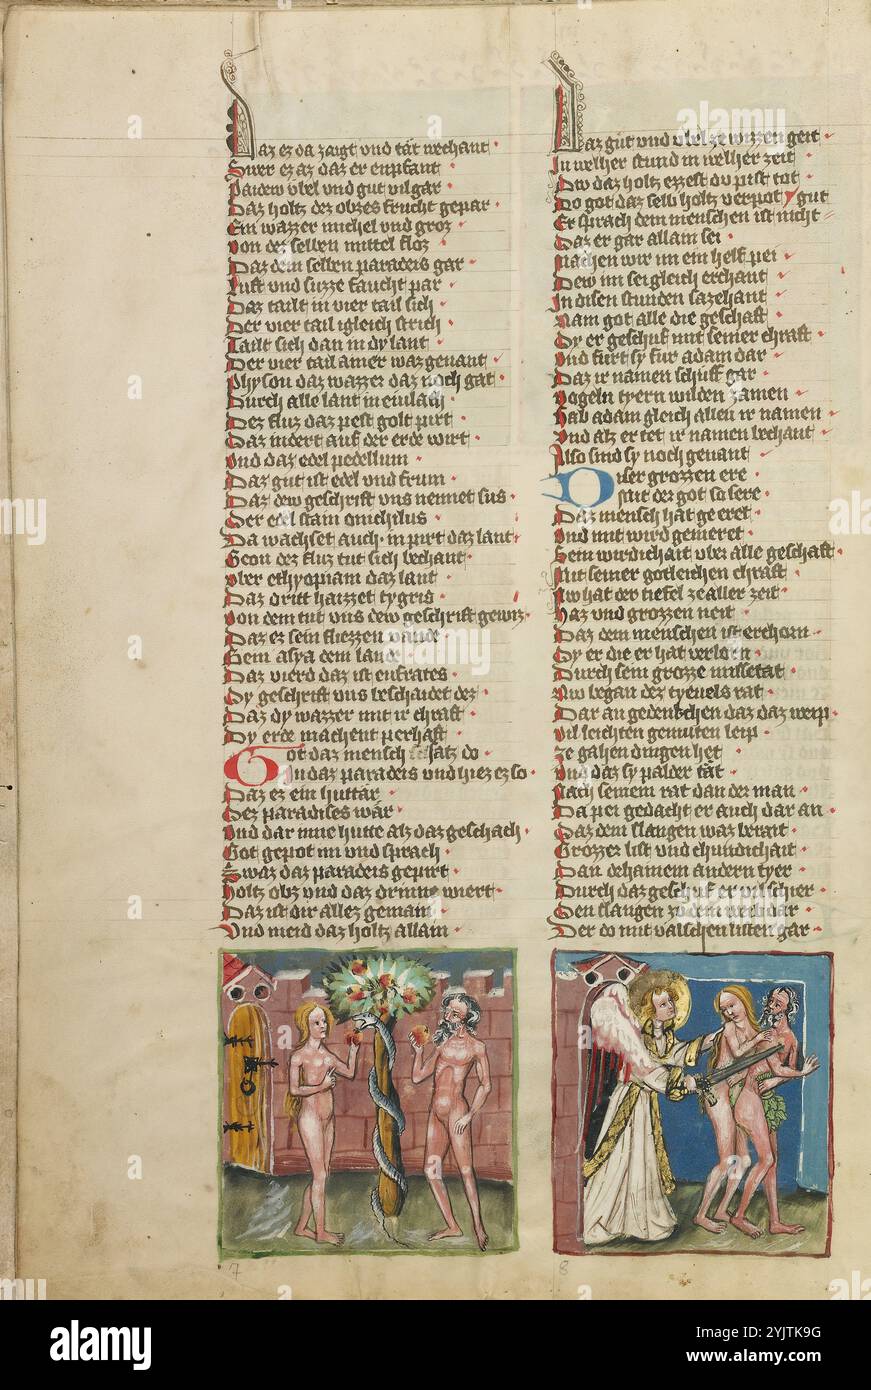 Daz ez da zaigt vnd tät bechant
Swer ez az daz er enpfant
Paidew vbel vnd gut vil gar
Daz holtz dez obzes frucht gepar
Ein wazzer michel vnd groz
Von der selben mittel floz
Daz dem selben paradeis gar
Luft vnd suzze faucht par
Daz tailt in vier tail sich
Der vier tail igleich strich
Tailt sich dan in dy lant
Der vier tail ainer waz genant
Physon daz wazzer daz noch gat
Durch alle lant in euilach
Dez fluz daz pest golt pirt
Daz indert auf der erde wirt
Vnd daz edel pedellium
Daz gut ist edel vnd frum
Daz dew geschrift vns nennet sus
Der edel stain onichilus
Da wachset auch in pirt daz lant
Geon dez fluz tut sich bechant
Vber ethyopiam daz lant
Daz dritt haizzet tygris
Von dem tut vns dew geschrift gewiz
Daz ez sein fliezzen wande
Gem asya dem lande
Daz vierd daz ist eufrates
Dy geschrift vns beschaidet dez
Daz dy wazzer mit ir chraft
Dy erde machent perhaft
Got daz mensch satz do
In daz paradeis vnd hiez ez so
Daz ez ein huttär
Dez paradises wär
Vnd dar inne hutte alz daz geschach
Got gepot im vnd sprach
Swaz daz paradeis gepirt
Holtz obz vnd daz dr inne wiert
Daz ist dir allez gemain
Vnd meid daz holtz allain
Daz gut vnd vbel ze wizzen geit
In welher stund in welher zeit
Dw daz holtz ezzest du pist tot
Do got daz selb holtz verpot
gut
Er sprach dem menschen ist nicht
Daz er gar allain sei
Machen wir im ein helf pei
Dew im sei gleich erchant
In disen stunden sazehant
Nam got alle die geschaft
Dy er geschuf mit seiner chraft
Vnd furt sy fur adam dar
Daz ir namen schuff gar
Vogeln tyern wilden zamen
Gab adam gleich allen ir namen
Vnd alz er tet ir namen bechant
Also sind sy noch genant
Diser grozzen ere
mit der got so sere
Daz mensch hat geeret
Vnd mit wird gemeret
Sein wirdichait vber alle geschaft
Mit seiner gotleichen chraft
Nw hat der tiefel ze aller zeit
Haz vnd grozzen neit
Daz dem menschen ist erchorn
Dy er die er hat verlorn
Durch sein grozze missetat
Nw began dez tyeuels rat
Dar an gedenkchen daz daz weip
Vil leichten gemuten leip
Ze gahen dingen het
Vnd daz sy palder tät
Nach seinem rat dan der man
Da pei gedacht er auch dar an
Daz dem slangen waz berait
Grozzer list vnd chundichait
Dan dehainem andern tyer
Durch daz geschuf er vil schier
Den slangen zu dem weib dar
Der do mit valschen listen gar
7
8
alamy
Image ID: 2YJTK9G
www.alamy.com